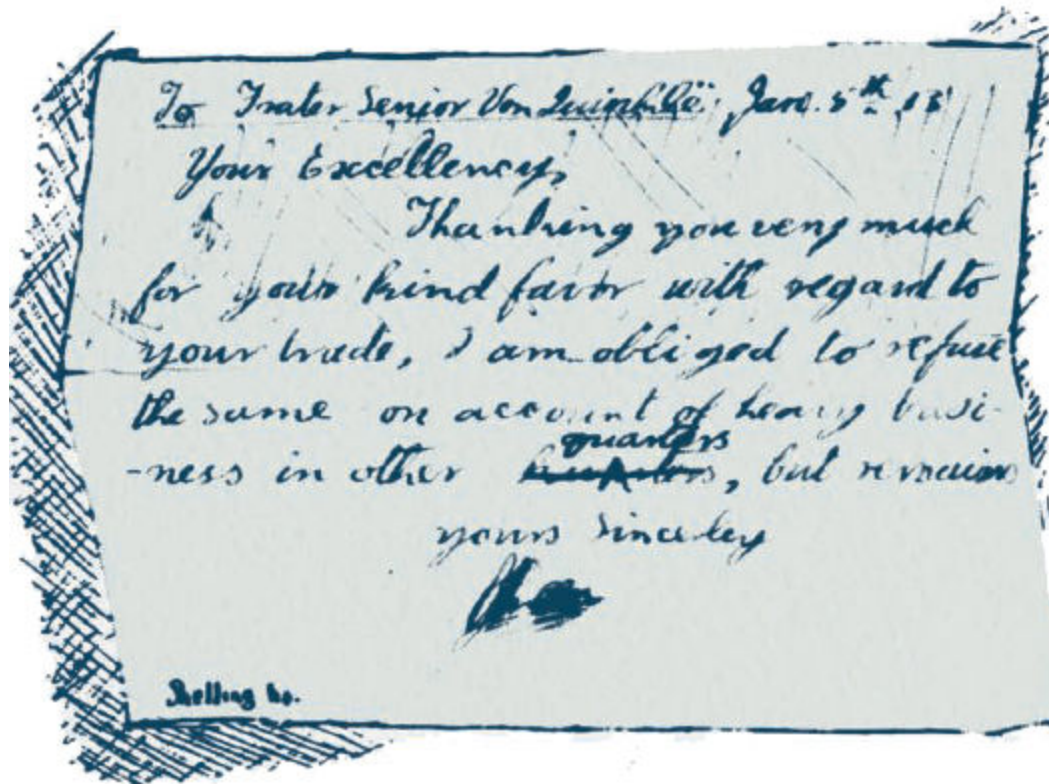 To Frater Senior Von Jan. 5th,
Your Excellency,
Thanking you very much
for your kind favor with regard to
your trade, I am obliged to refuse
the same on account of heavy busi-
-ness in other quarters, but remains
yours Sincerley